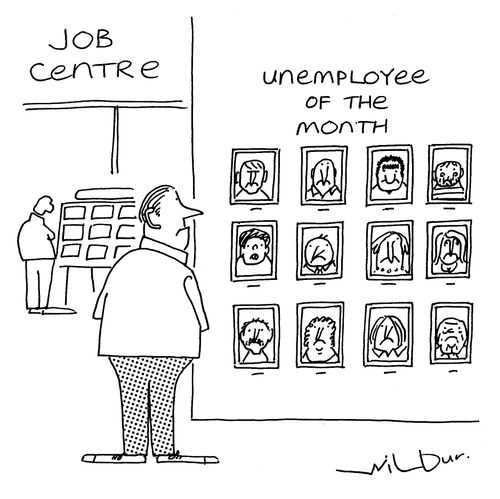 JOB
CeNTRe
UNeMPLOYee
OF THe
MONTH
Wilbur.